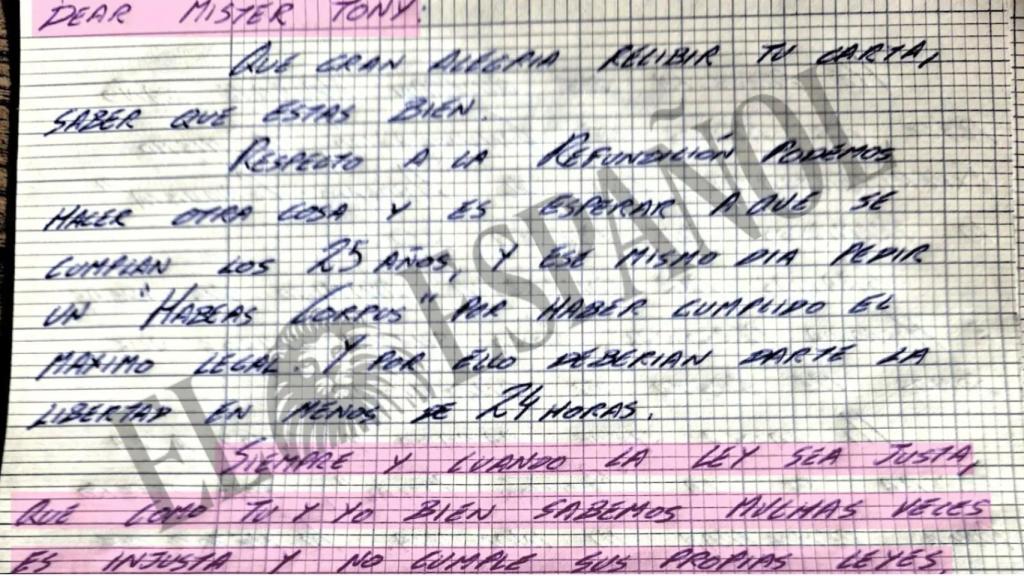 DEAR MISTER TONY:
QUE GRAN ALEGRIA RECIBIR TU CARTA,
SABER QUE ESTAS BIEN.
RESPECTO A LA REFUNDICIÓN PODEMOS
HACER OTRA COSA Y ES ESPERAR A QUE SE
CUMPLAN LOS 25 AÑOS, Y ESE MISMO DIA PEDIR
UN "HABEAS CORPUS" POR HABER CUMPLIDO EL
MAXIMO LEGAL. Y POR ELLO DEBERIAN DARTE LA
LIBERTAD EN MENOS DE 24 HORAS.
SIEMPRE Y CUANDO LA LEY SEA JUSTA,
QUE COMO TU Y YO BIEN SABEMOS MUCHAS VECES
ES INJUSTA Y NO CUMPLE SUS PROPIAS LEYES.
EL ESPAÑOL